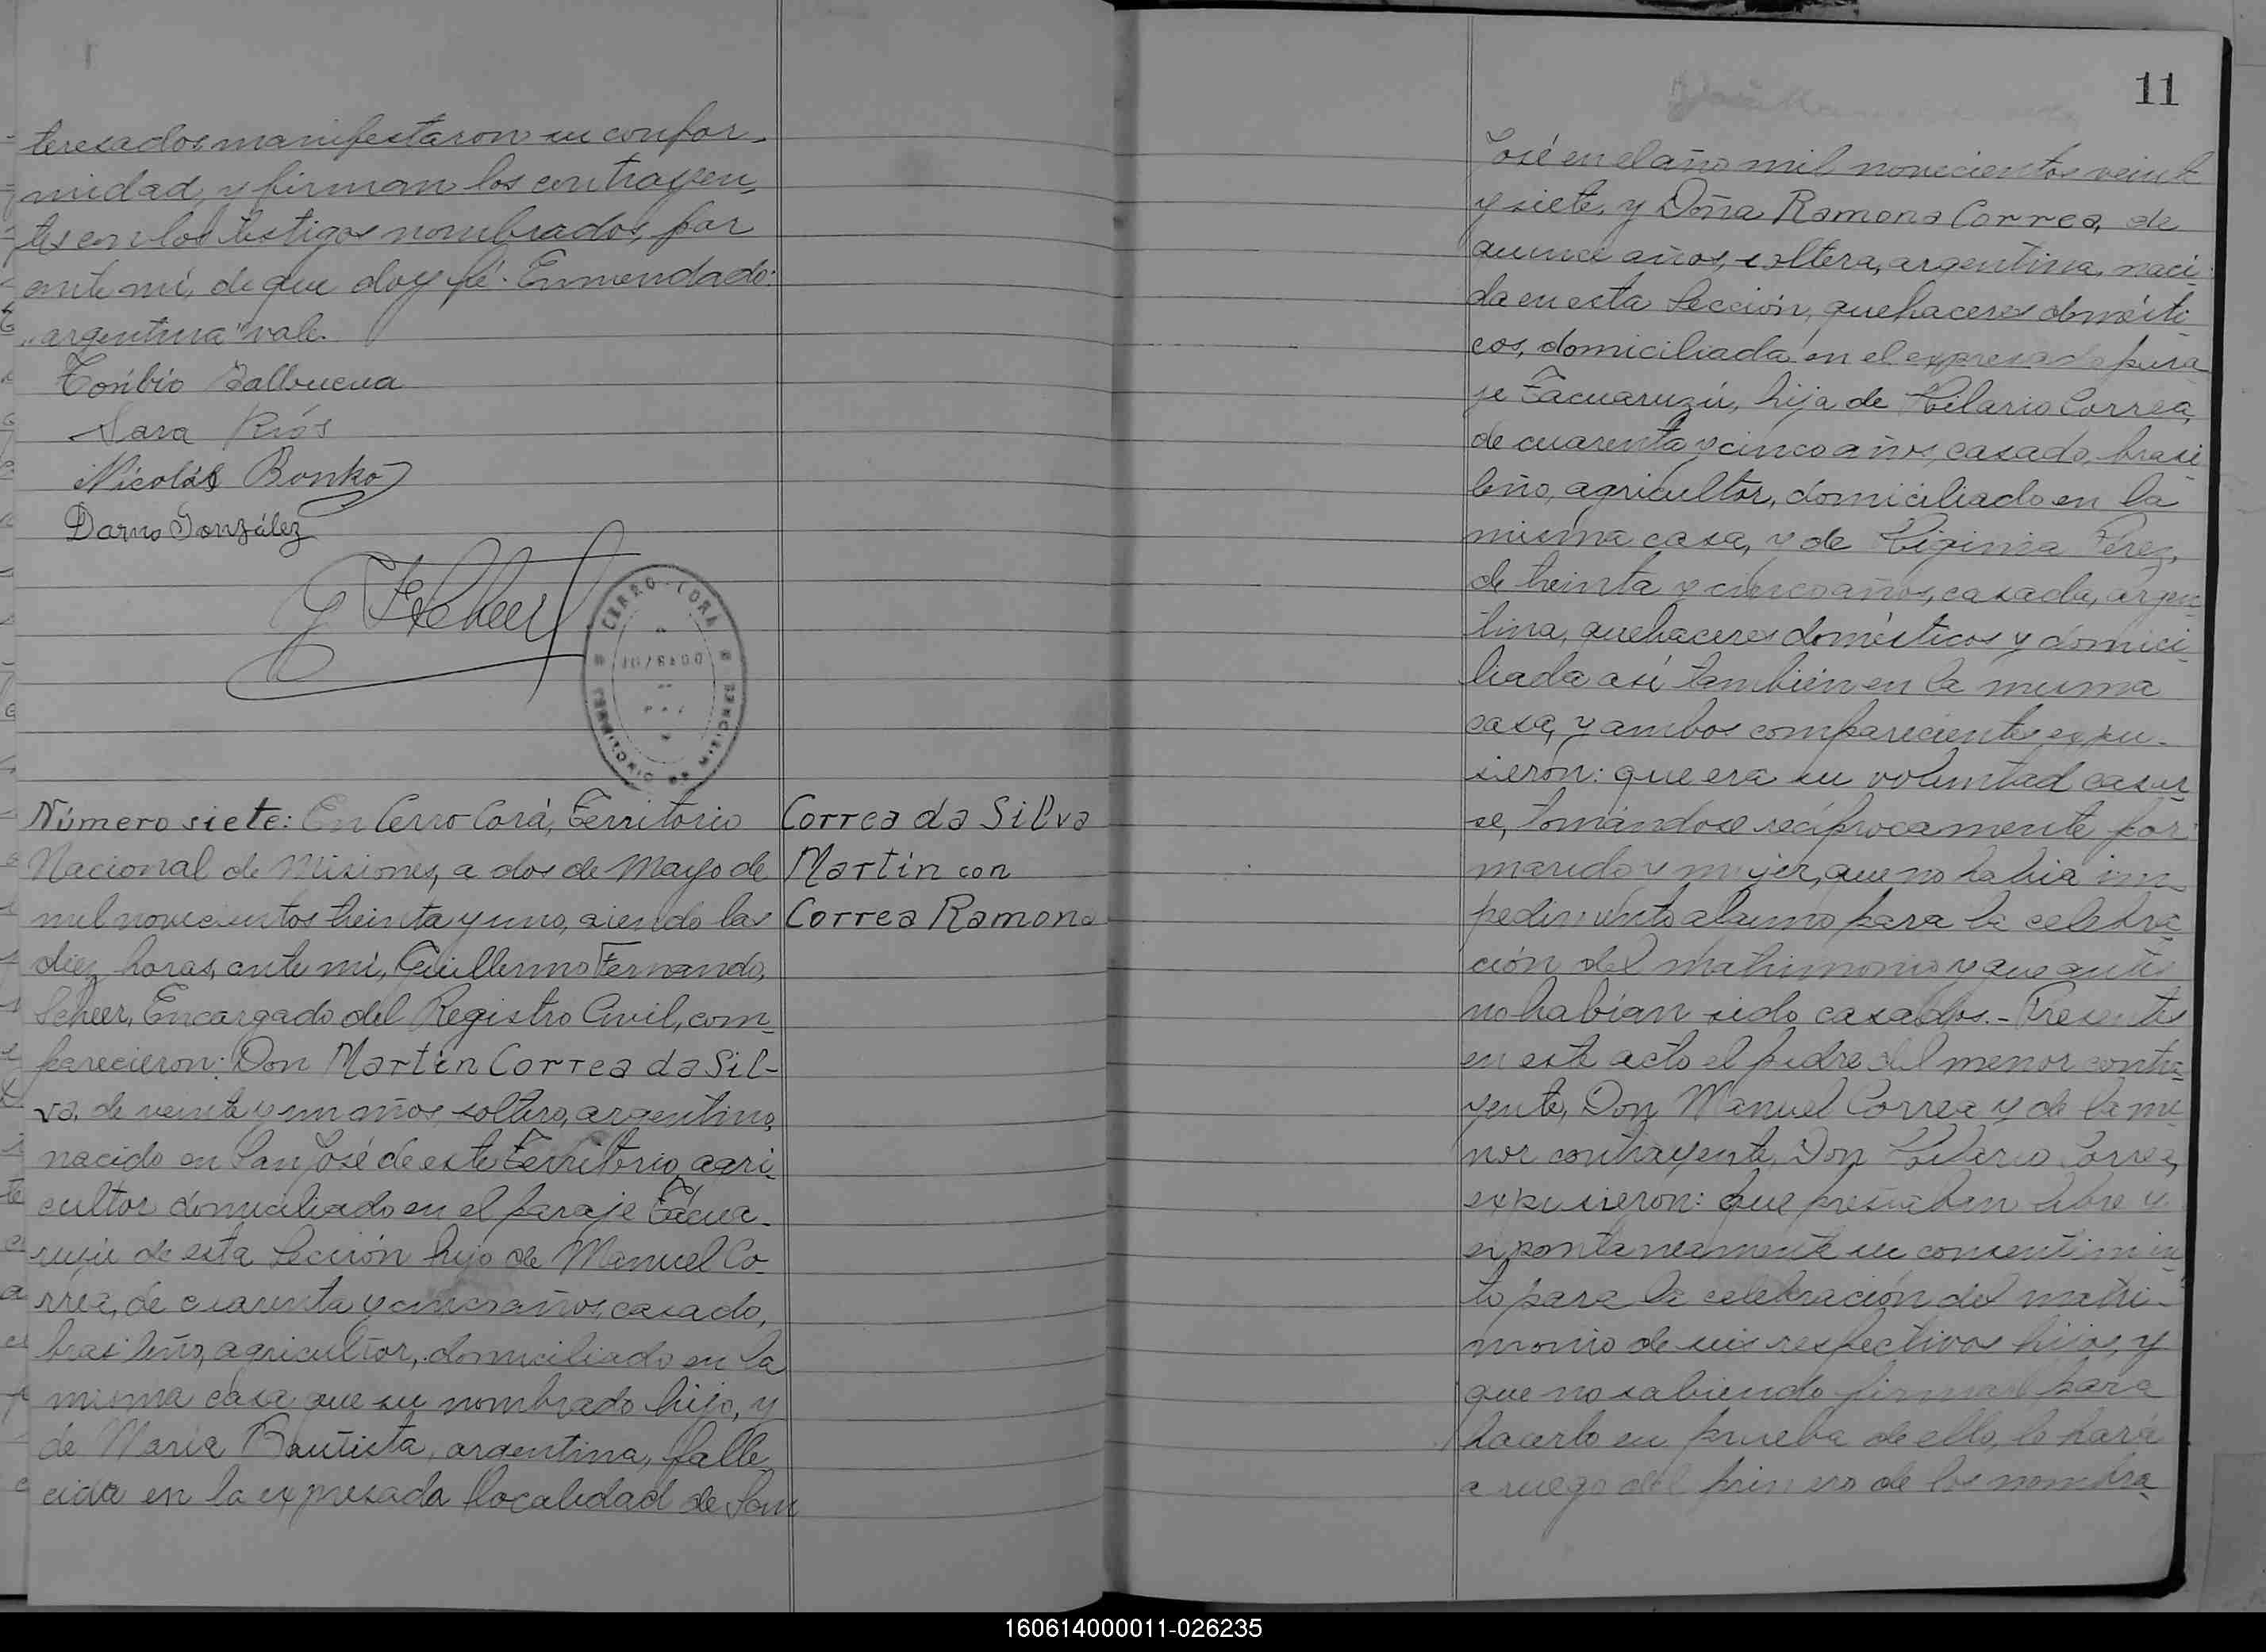 teresados manifestaron su confor-
midad, y firman los contrayen-
tes con los testigos nombrados, por
ante mí, de que doy fé. Enmendado:
"argentina" vale.
Toribio Balbuena
Sara Ríos
Nícolás Bonko
Darno González
G F Scheer
CERRO-CORÁ
JUZGADO
DE
PAZ
MISIONES
Número siete: En Cerro Corá, Territorio
Nacional de Misiones, a dos de Mayo de
mil novecientos treinta y uno, siendo las
diez horas, ante mí, Guillermo Fernando,
Scheer, Encargado del Registro Civil, com-
parecieron: Don Martín Correa da Sil-
va, de veinte y un años, soltero, argentino,
nacido en San José de este Territorio, agri-
cultor domiciliado en el paraje Tacua-
ruzú de esta Sección hijo de Manuel Co-
rrea, de cuarenta y cinco años, casado,
brasileño, agricultor, domiciliado en la
misma casa que su nombrado hijo, y
de María Bautista, argentina, falle-
cida en la expresada localidad de San
Correa da Silva
Martín con
Correa Ramona
11
José en el año mil novecientos veinte
y siete, y Doña Ramona Correa, de
quince años, soltera, argentina, naci-
da en esta Sección, quehaceres domésti-
cos, domiciliada en el expresado para-
je Tacuaruzú, hija de Hilario Correa,
de cuarenta y cinco años, casado, brasi-
leño, agricultor, domiciliado en la
misma casa, y de Higinia Pérez,
de treinta y cinco años, casada, argen-
tina, quehaceres domésticos y domici-
liada así también en la misma
casa, y ambos comparecientes expu-
sieron: que era su voluntad casar-
se, tomándose recíprocamente por
marido y mujer, que no había im-
pedimento alguno para la celebra-
ción del matrimonio y que antes
no habían sido casados.- Presentes
en este acto el padre del menor contra-
yente, Don Manuel Correa y de la me-
nor contrayente, Don Hilario Correa,
expusieron: que prestaban libre y
espontaneamente su consentimien-
to para la celebración del matri-
monio de sus respectivos hijos, y
que no sabiendo firmar para
hacerlo en prueba de ello, lo hará
a ruego del primero de los nombra-
160614000011-026235